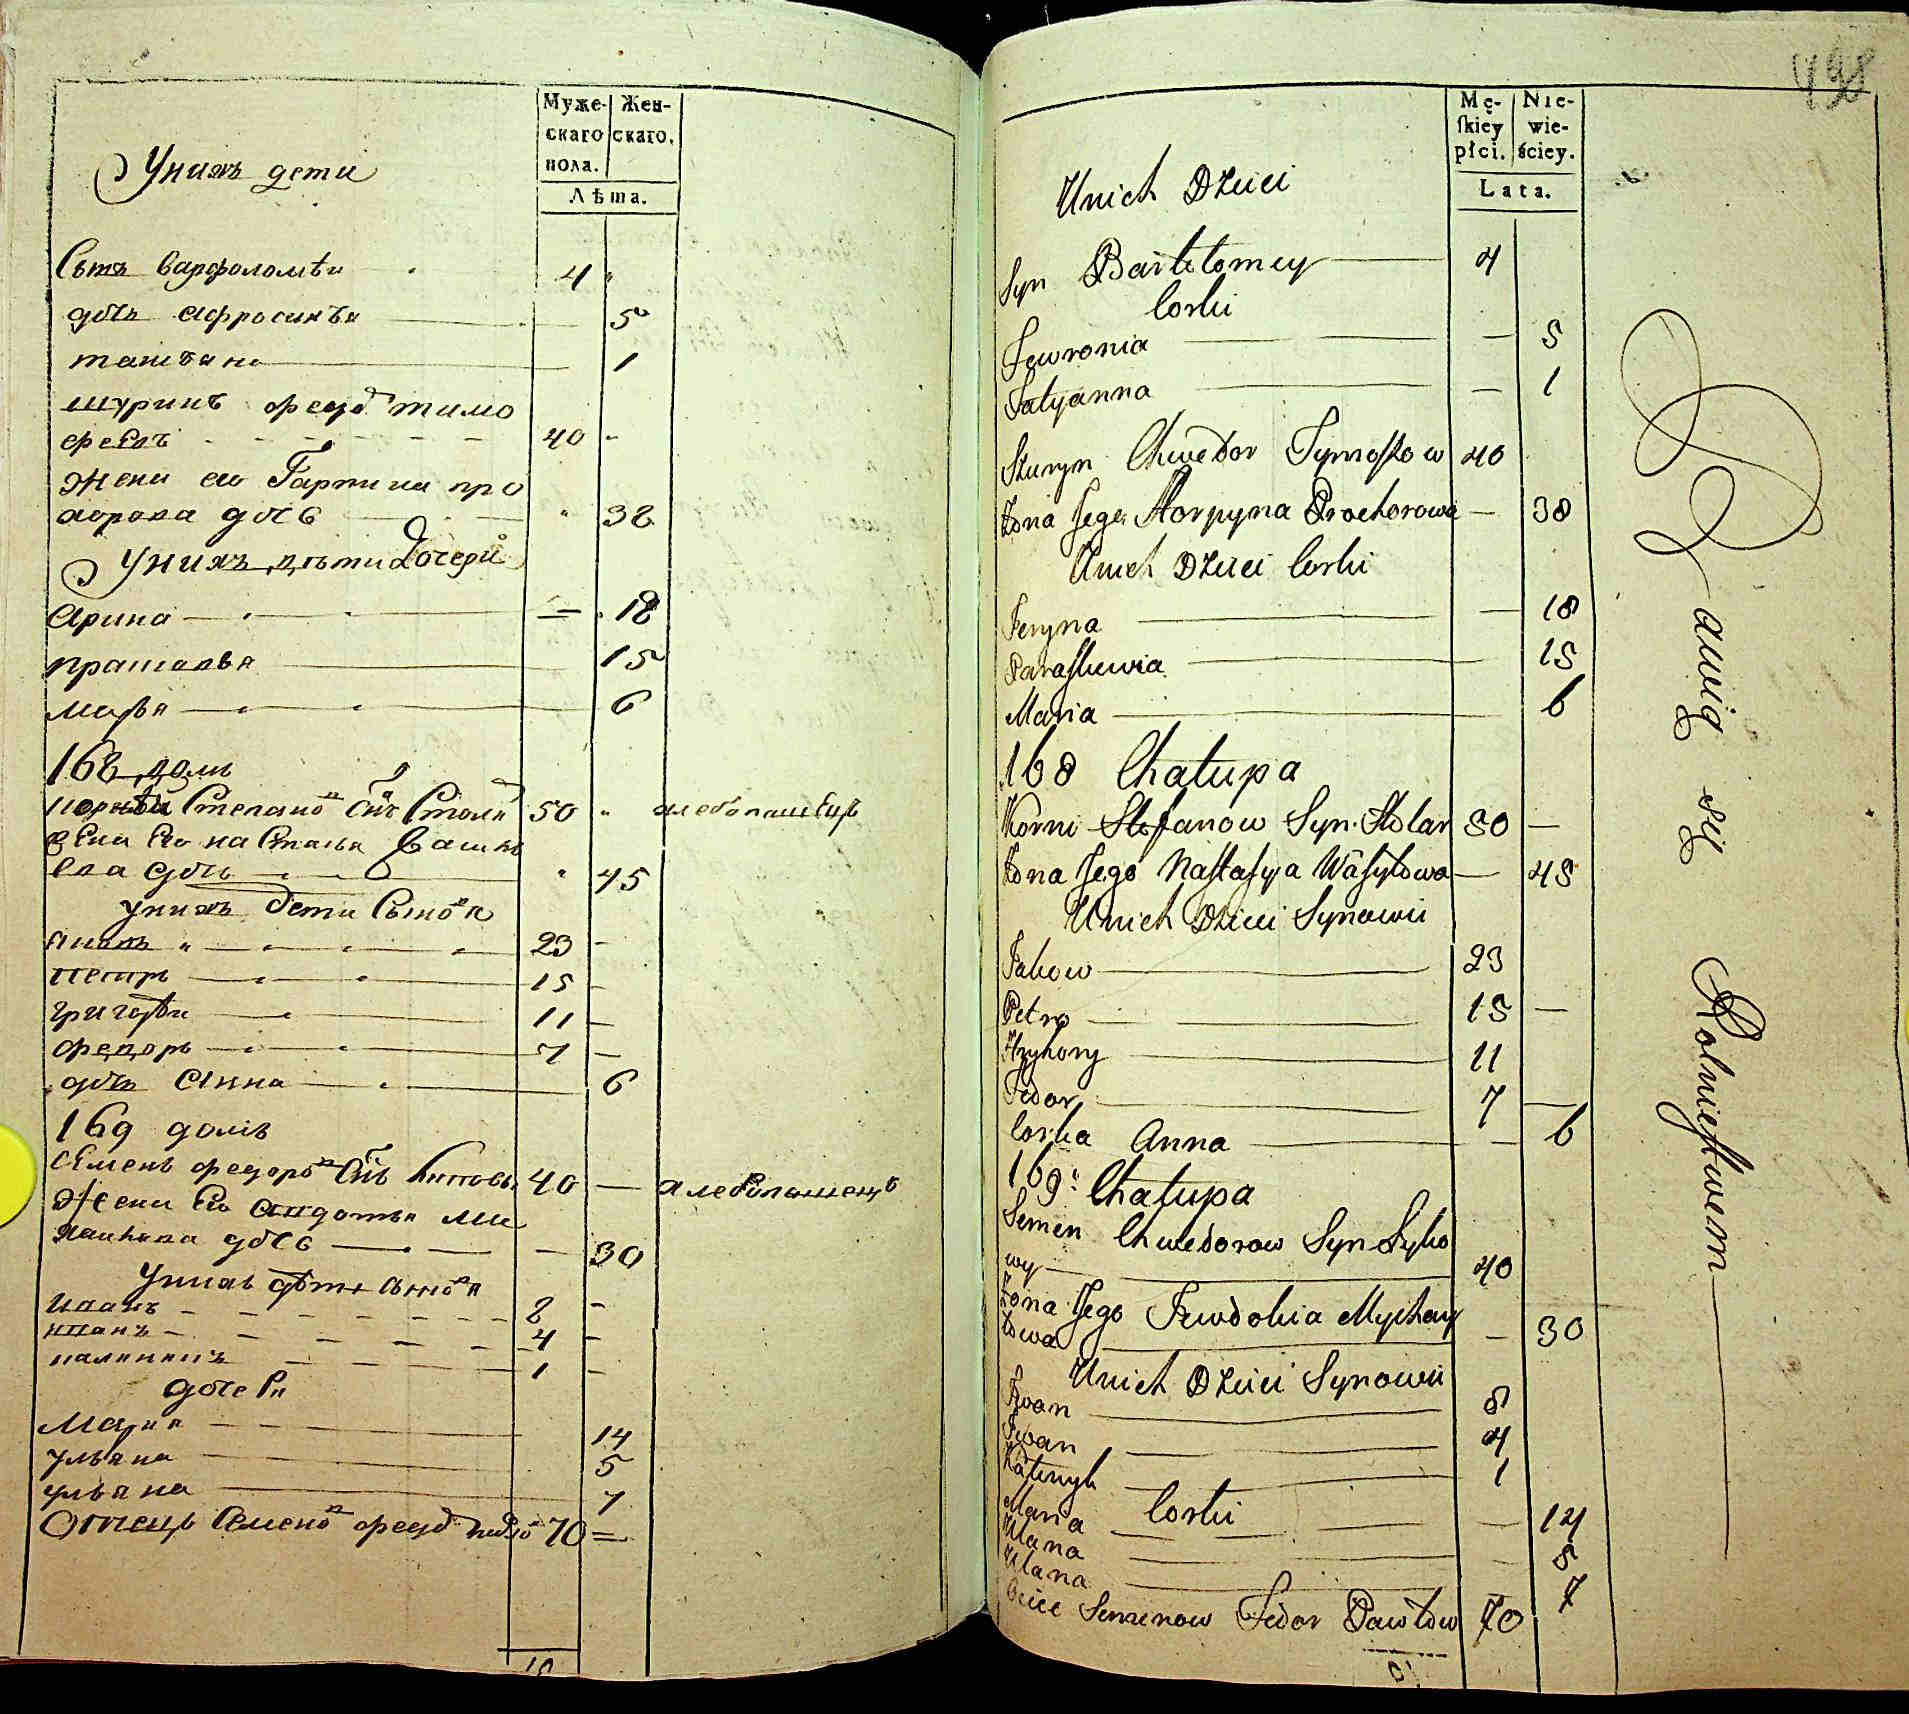 Муже-
скаго
пола.
Жен-
скаго.
Лѣта.
Унихъ дети
Сынъ варфоломѣи 4
дочь Афросинья 5
татьяна 1
шуринъ федоръ тимо
феевъ 40
Жена его Гарпина про
хорова дочь 38
Унихъ дѣти Дочери
Арина 18
прасковья 15
марья 6
168 домъ
Корнѣй Степановъ Сынъ Столяръ 50
жена Его настасья Васил
ева дочь 45
унихъ дети Сыновя
яковъ 23
петръ 15
григорѣи 11
федоръ 7
дочь Анна 6
169 домъ
Семенъ федоровъ Сынъ 40
Жена Его Авдотья Ми
хайлова дочь 30
Унихъ дѣти Сыновя
иванъ 8
иванъ 4
калиникъ 1
дочери
Марья 14
ульяна 5
ульяна 7
Отецъ Семеновъ федоръ павловъ 70
498
Mę-
ſkiey
płci.
Nie-
wie-
ściey.
Lata.
Unich Dzieci
Syn Bartłomiey 4
Corki
Fewronia 5
Tatyanna 1
Szuryn Chwedor Tymofiow 40
Żona Jego Horpyna Prochorowa 38
Unich Dzieci Corki
Jeryna 18
Paraſkiewia 15
Maria 6
168 Chałupa
Korni Stefanow Syn Stolar 50
Żona Jego Naſtaſya Waſyłowa 45
Unich Dzieci Synowie
Jakow 23
Petro 15
Hryhory 11
Fedor 7
Corka Anna 6
169: Chałupa
Semen Chwedorow Syn Łyko
wy 40
Żona Jego Jewdokia Mychay
łowa 30
Unich Dzieci Synowie
Iwan 8
Iwan 4
Kałenyk 1
Corki
Maria 14
Ulana 5
Ulana 7
Ociec Semenow Fedor Pawłow 70
Bawią się Rolnictwem